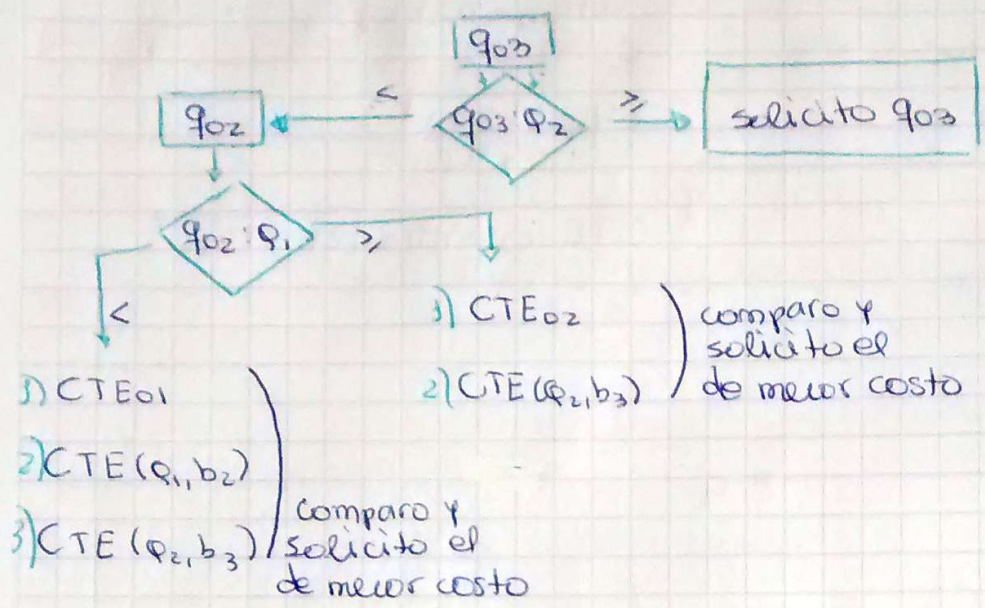 q03
<
q03:Q2
≥
solicito q03
q02
q02:Q1
≥
<
1) CTE02
2) CTE(Q2,b3)
comparo y
solicito el
de menor costo
1) CTE01
2) CTE(Q1,b2)
3) CTE(Q2,b3)
comparo y
solicito el
de menor costo